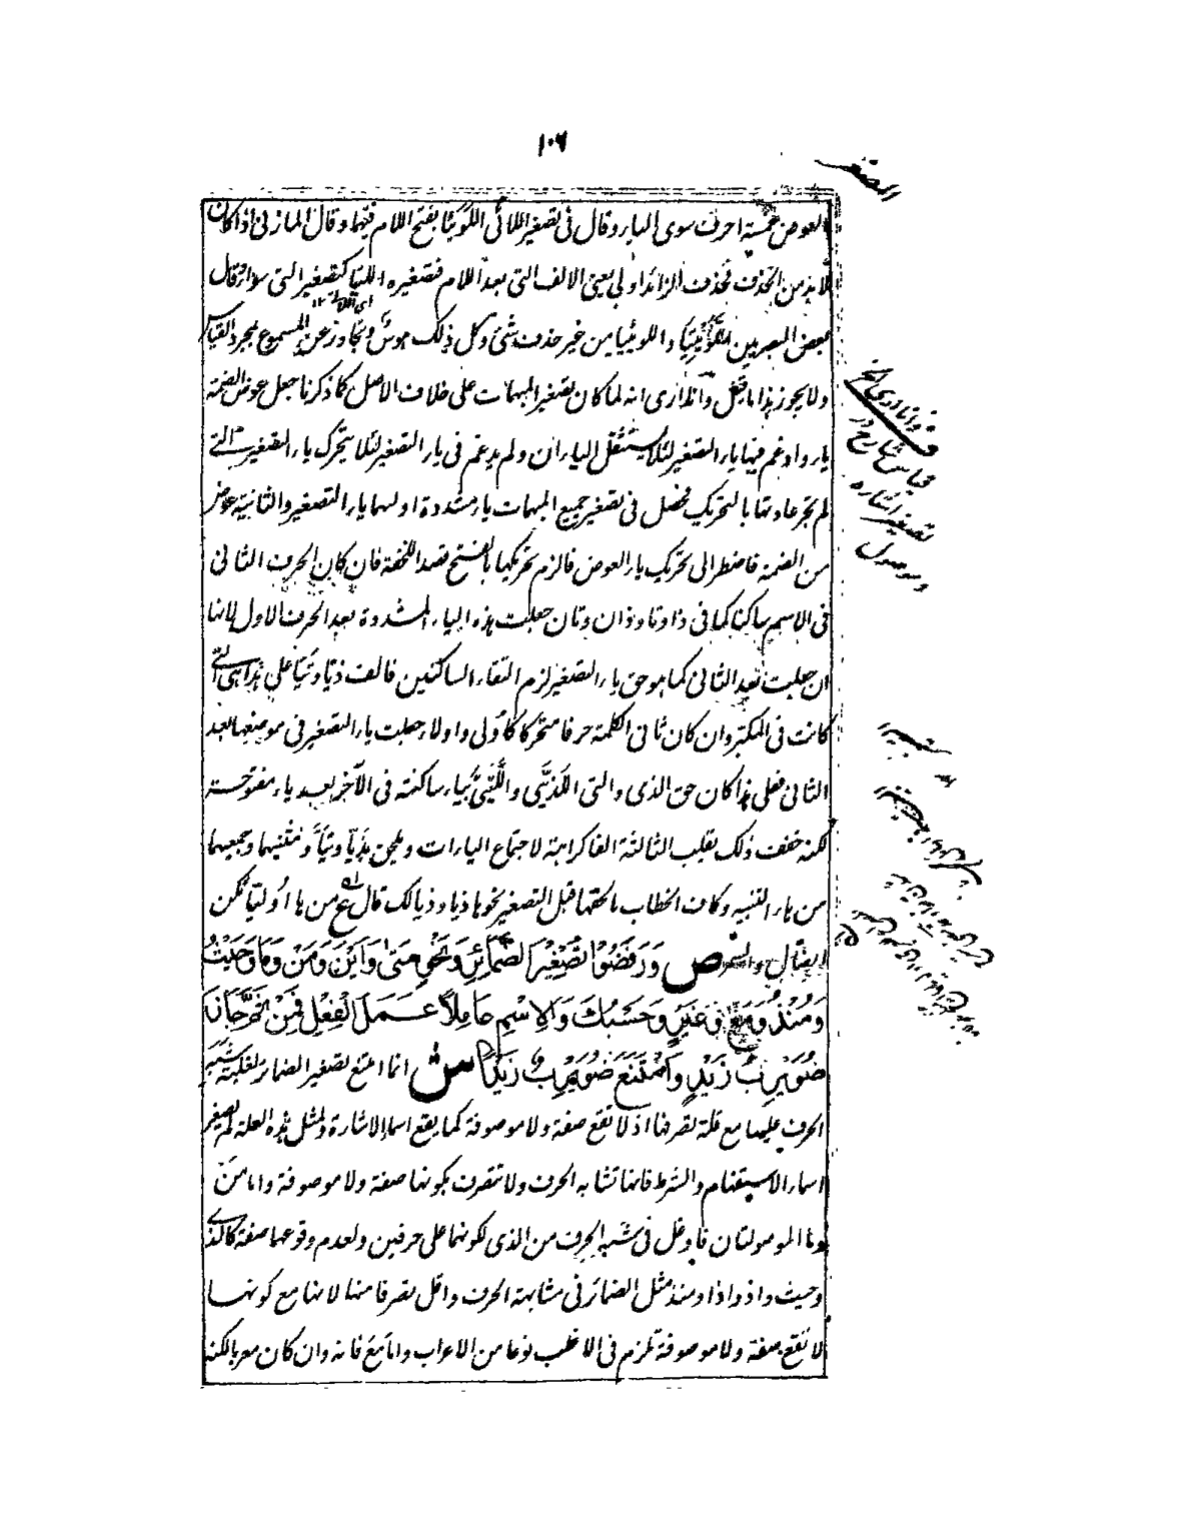 ١٠٦
المصغر
العوض خمسة احرف سوى الياء وقال فى تصغير اللائى اللويتا بفتح اللام فيها وقال المازنى اذا كان
لا بد من الحذف فحذف الزائد اولى يعنى الالف التى بعد اللام فتصغيره اللتيا كتصغير التى سواء وقال
بعض البصريين اللويتيا واللويئيا من غير حذف شئ وكل ذلك هوس وتجاوز عن المسموع بمجرد القياس
ولا يجوز هذا ما قيل وانا ارى انه لما كان تصغير المبهمات على خلاف الاصل كما ذكرنا جعل عوض الضمة
ياء وادغم فيها ياء التصغير لئلا يستثقل الياءان ولم يدغم فى ياء التصغير لئلا يتحرك ياء التصغير التى
لم تجر عادتها بالتحريك فحصل فى تصغير جميع المبهمات ياء مشددة اولها ياء التصغير والثانية عوض
من الضمة فاضطر الى تحريك ياء العوض فالزم تحريكها بالفتح قصدا للخفة فان كان الحرف الثانى
فى الاسم ساكنا كما فى ذا وتا وذان وتان جعلت هذه الياء المشددة بعد الحرف الاول لانها
ان جعلت بعد الثانى كما هو حق ياء التصغير لزم التقاء الساكنين فالف ذيا وتيا على هذا هى التى
كانت فى المكبر وان كان ثانى الكلمة حرفا متحركا كأولى واولاء جعلت ياء التصغير فى موضعها بعد
الثانى فعلى هذا كان حق الذى والتى اللذيى واللتيى بياء ساكنة فى الآخر بعد ياء مفتوحة
لكنه خفف ذلك بقلب الثالثة الفا كراهة لاجتماع الياءات ويلحق بذيا وتيا ومثنيهما وجمعيهما
من هاء التنبيه وكاف الخطاب ما لحقها قبل التصغير نحو هاذيا وذيالك قال ع من هااوليائكن
الضال والسمر ص وَرَفَضُوْا تَصْغِيْرَ الضَّمَائِرِ وَنَحْوِ مَتى وَاَيْنَ وَمَنْ وَمَا وَحَيْثُ
وَمُنْذُ وَمَعَ وَغَيْرٍ وَحَسْبُكَ وَالْاِسْمِ عَامِلًا عَمَلَ الْفِعْلِ فَمِنْ ثَمَّ جَازَ
ضُوَيْرِبُ زَيْدٍ وَامْتَنَعَ ضُوَيْرِبٌ زَيْدًا ش انما امتنع تصغير الضمائر لغلبة شبه
الحرف عليها مع قلة تصرفها اذ لا تقع صفة ولا موصوفة كما يقع اسماء الاشارة ولمثل هذه العلة لم يصغر
اسماء الاستفهام والشرط فانها تشابه الحرف ولا تتصرف بكونها صفة ولا موصوفة واما من
وما الموصولتان فاوغل فى شبه الحرف من الذى لكونهما على حرفين ولعدم وقوعهما صفة كالذى
وحيث واذ واذا ومنذ مثل الضمائر فى مشابهة الحرف واقل تصرفا منها لانها مع كونها
لا تقع صفة ولا موصوفة تلزم فى الاغلب نوعا من الاعراب واما مع فانه وان كان معربا لكنه